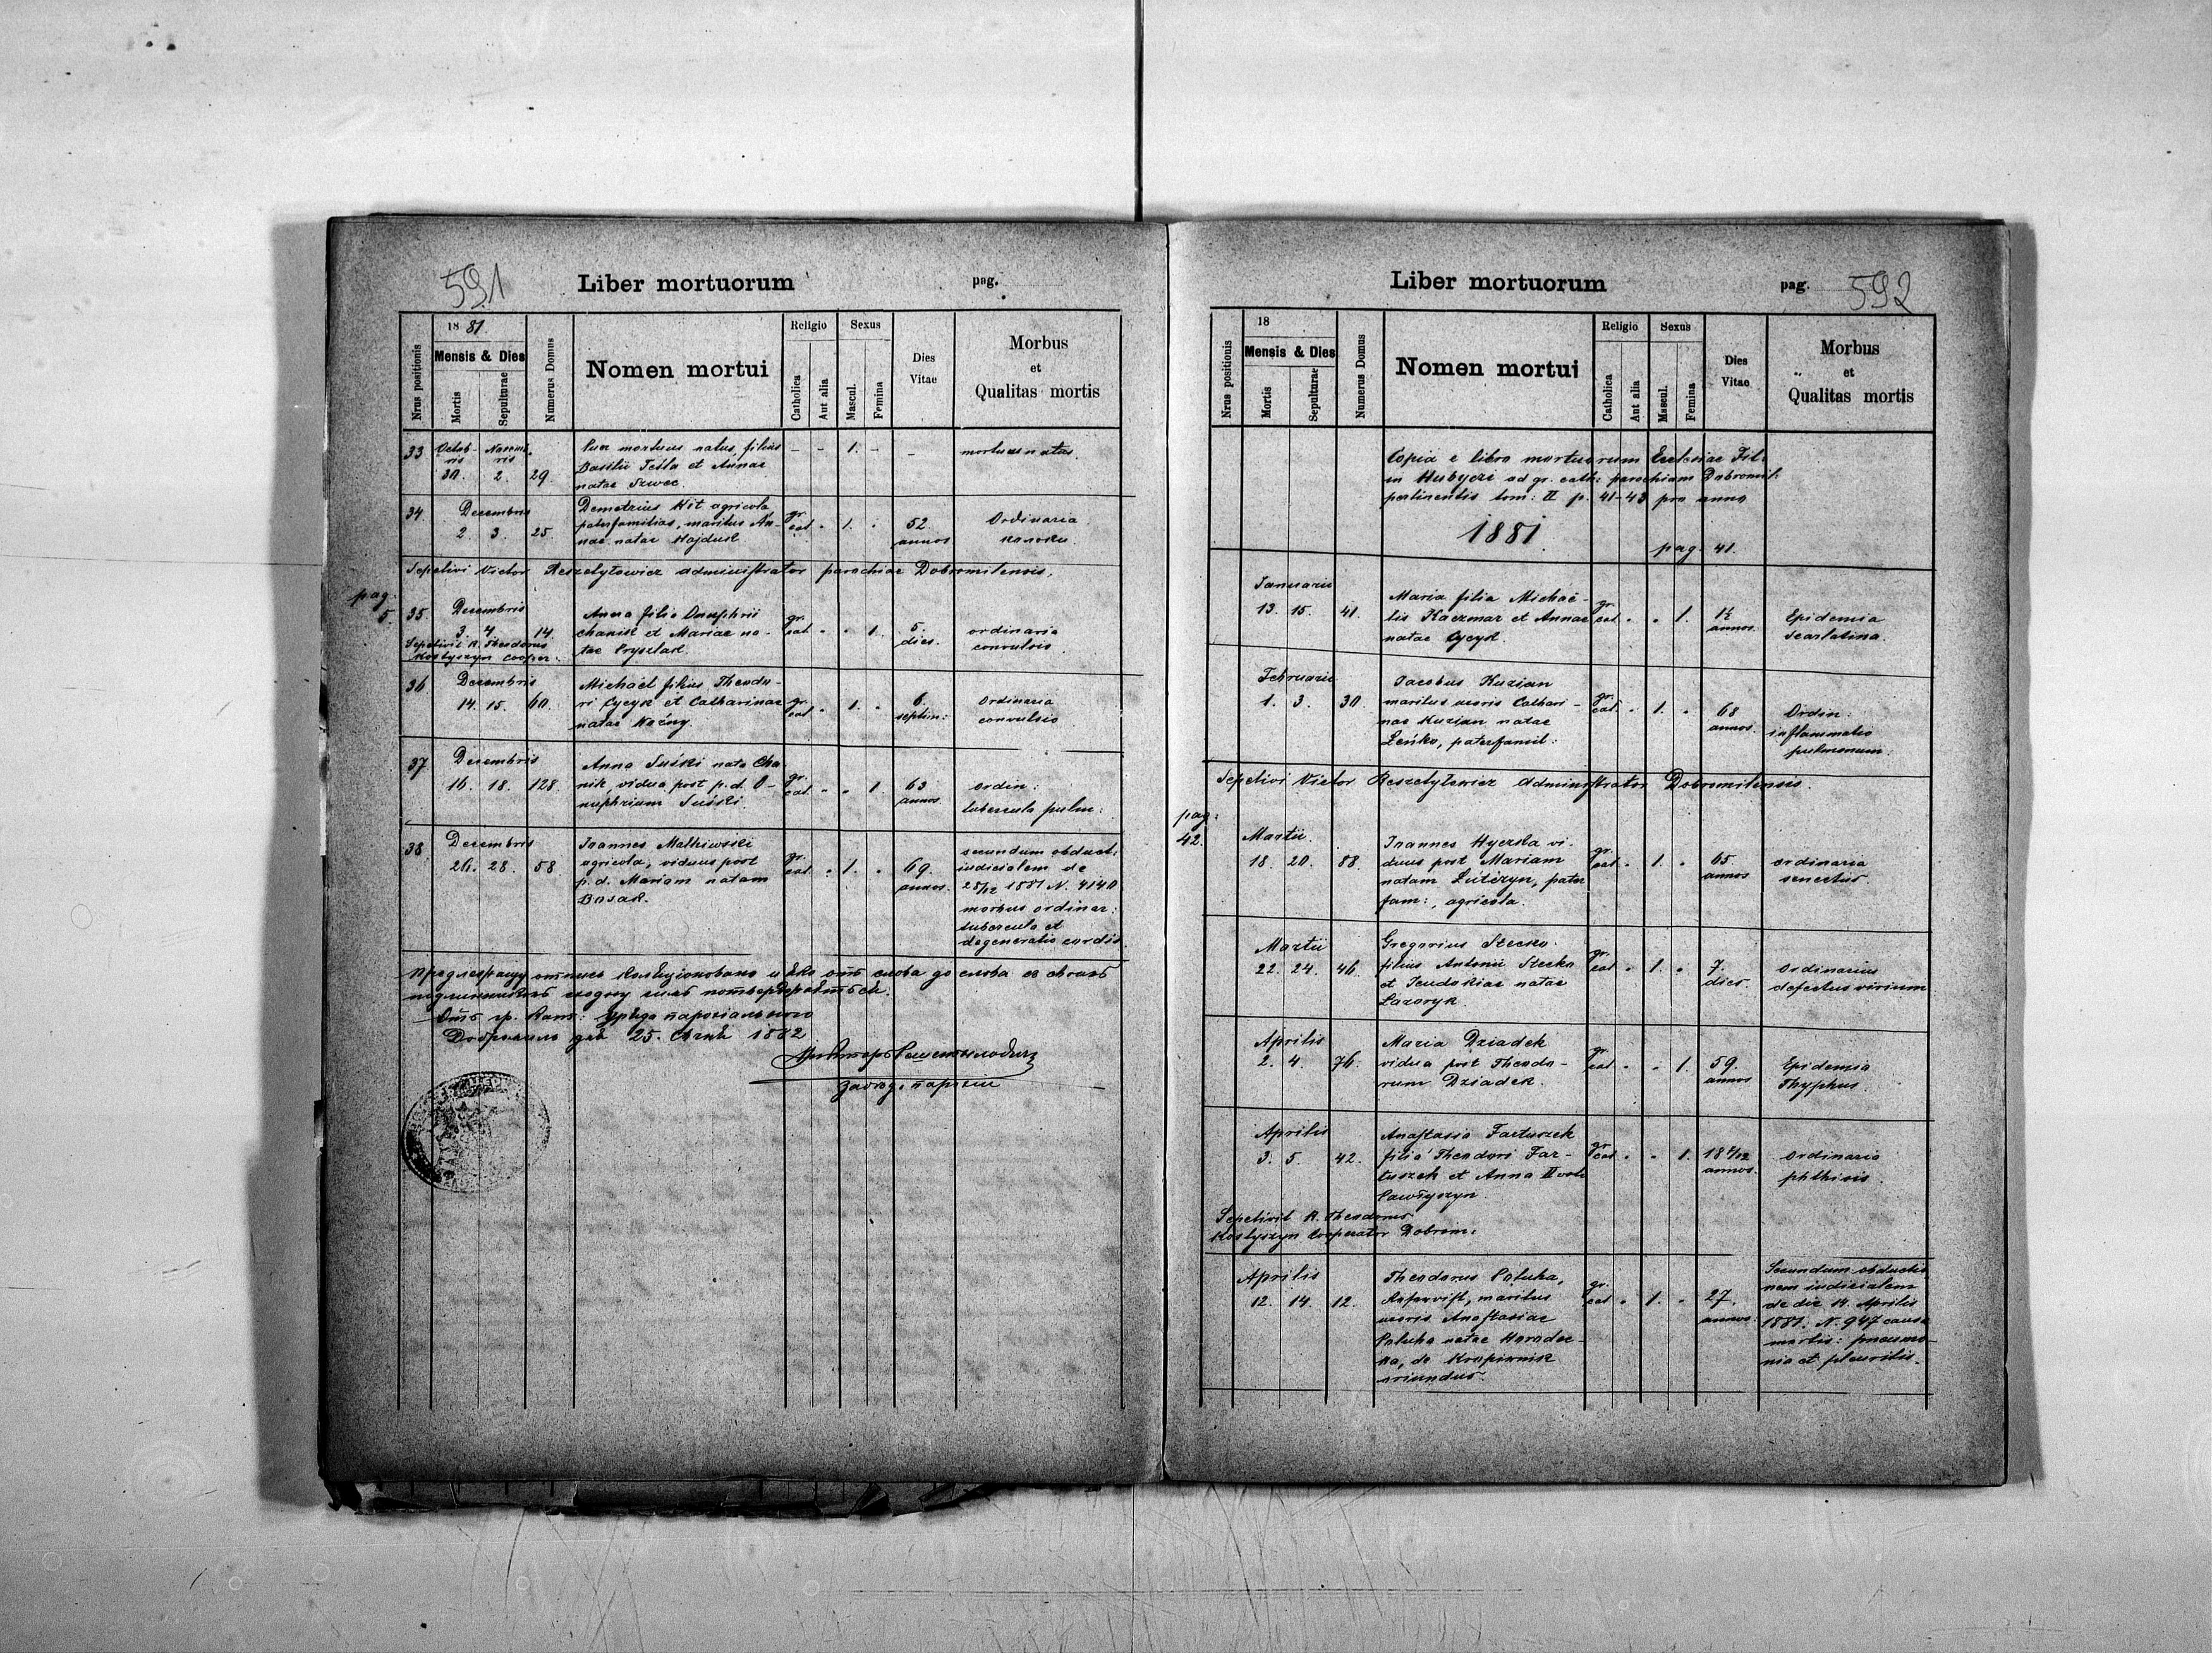 591
Liber mortuorum
pag.
Nrus positionis
18 81
Mensis & Dies
Mortis
Sepulturae
Numerus Domus
Nomen mortui
Religio
Catholica
Aut alia
Sexus
Mascul.
Femina
Dies
Vitae
Morbus
et
Qualitas mortis
33 Octob- Novem-
ris ris
30. 2. 29
Puer mortuus natus, filius
Basilii Tesla et Annae
natae Szwec.
- - 1. - -
mortuus natus.
34 Decembris
2. 3. 25.
Demetrius Kit agricola
paterfamilias, maritus An-
nae natae Hajduk
gr.
cat. " 1. "
52
annos
Ordinaria
Sepelivi Victor Reszetyłowicz administrator parochiae Dobromilensis.
pag.
5.
35. Decembris
3. 4. 14.
Sepelivit R. Theodorus
Kostyszyn cooper.
Anna filia Onuphrii
Chanik et Mariae na-
tae Prysztak.
gr.
cat. " " 1.
5.
dies.
ordinaria
convulsio.
36 Decembris
14. 15. 60.
Michael filius Theodo-
ri Cycyk et Catharinae
natae
gr.
cat. " 1. "
6.
septim:
Ordinaria
convulsio
37 Decembris
16. 18. 128
Anna Suski nata Cha
nik, vidua post p. d. O-
nuphrium Suski.
gr.
cat. " " 1.
63
annos
ordin:
tubercula pulm:
38 Decembris
26. 28. 58.
Joannes Malhiwski
agricola, viduus post
p. d. Mariam natam
Bosak.
gr.
cat. " 1. "
69.
annos.
secundum obduct:
iudicialem de
28/12 1881 N. 4140
morbus ordinar:
tubercula et
degeneratio cordis.
слова до слова
Отъ гр. кат: Уряда парохіального
25. 1882
592
Liber mortuorum
pag.
Nrus positionis
18
Mensis & Dies
Mortis
Sepulturae
Numerus Domus
Nomen mortui
Religio
Catholica
Aut alia
Sexus
Mascul.
Femina
Dies
Vitae
Morbus
et
Qualitas mortis
Copia e libro mortuorum Ecclesiae Fil:
in Hubyczi ad gr. cath: parochiam Dobromil:
pertinentis tom: II p. 41-43 pro anno
1881.
pag. 41.
Januarii
13. 15. 41.
Maria filia Michaë-
lis Kaczmar et Annae
natae Cycyk.
gr.
cat. " " 1.
1½
annos.
Epidemia
Scarlatina.
Februarii
1. 3. 30
Jacobus Kuzian
maritus uxoris Cathari-
nae Kuzian natae
Łeńko, paterfamil:
gr.
cat. " 1. "
68
annos.
Ordin:
inflammatio
pulmonum.
Sepelivi Victor Reszetyłowicz Administrator Dobromilensis.
pag:
42.
Martii
18. 20. 88
Joannes Hyczla vi-
duus post Mariam
natam Lutczyn, pater
fam:, agricola.
gr.
cat. " 1. "
65.
annos
ordinaria
senectus.
Martii
22. 24. 46.
Gregorius Stecko
filius Antonii Stecko
et Teudokiae natae
Lazoryk.
gr.
cat. " 1. "
7.
dies.
ordinarius
defectus virium
Aprilis
2. 4. 76.
Maria Dziadek
vidua post Theodo-
rum Dziadek.
gr.
cat. " " 1.
59.
annos
Epidemia
Thyphus.
Aprilis
3. 5. 42.
Anastasia Fartuszek
filia Theodori Far-
tuszek et Anna II voti
Pawłyszyn.
gr.
cat. " " 1.
18 4/12
annos.
ordinaria
phthisis.
Sepelivit R. Theodorus
Kostyszyn Cooperator Dobrom:
Aprilis
12. 14. 12.
Theodorus Paluha,
Reservist, maritus
uxoris Anastasiae
Paluha natae Horodec-
ka, de Kropiwnik
oriundus.
gr.
cat. " 1. "
27.
annos.
Secundum obductio
nem iudicialem
de die 14. Aprilis
1881. N. 947 causa
mortis: pneumo-
nia et pleuritis.